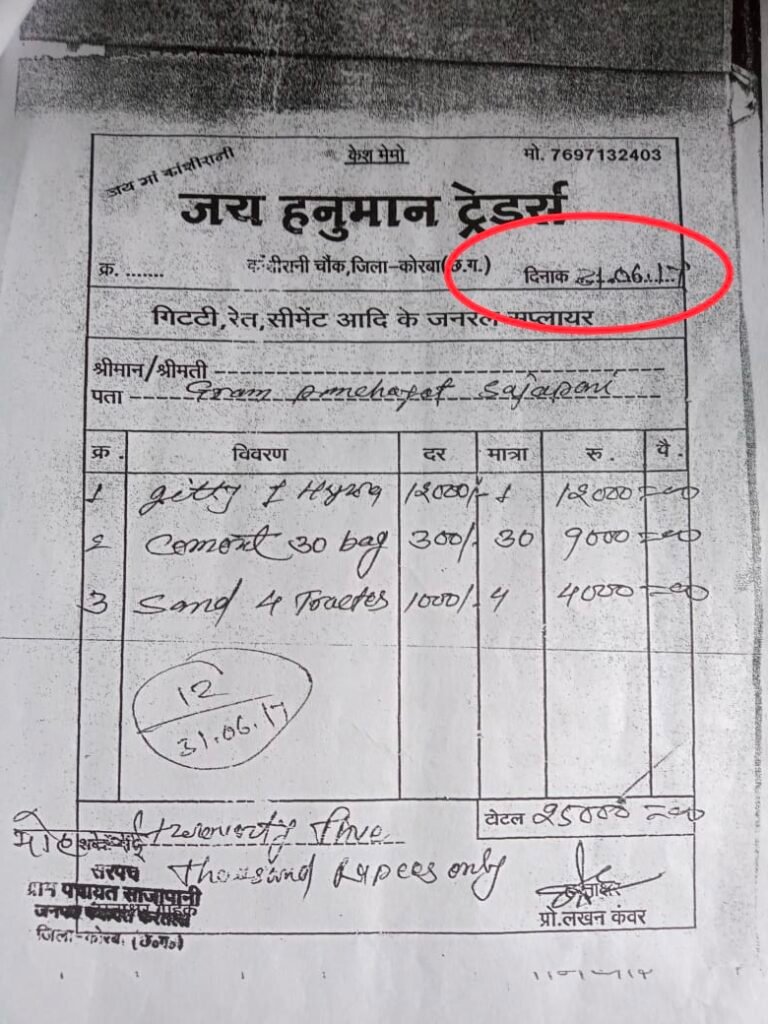 जय मां कांशीरानी
केश मेमो
मो. 7697132403
जय हनुमान ट्रेडर्स
क्र. .......
कांशीरानी चौंक,जिला-कोरबा(छ.ग.)
दिनाक 31.06.17
गिटटी,रेत,सीमेंट आदि के जनरल सप्लायर
श्रीमान/श्रीमती
पता Gram panchayat Sajapani
क्र. विवरण दर मात्रा रु. पै.
1 gitty 1 Hywa 12000/- 1 12000=00
2 Cement 30 bag 300/- 30 9000=00
3 Sand 4 Tractes 1000/- 4 4000=00
12
31.06.17
टोटल 25000=00
Twenty Five
Thousand Rupees only
सरपंच
ग्राम पंचायत साजापानी
जिला-कोरबा (छ०ग०)
प्रो.लखन कंवर